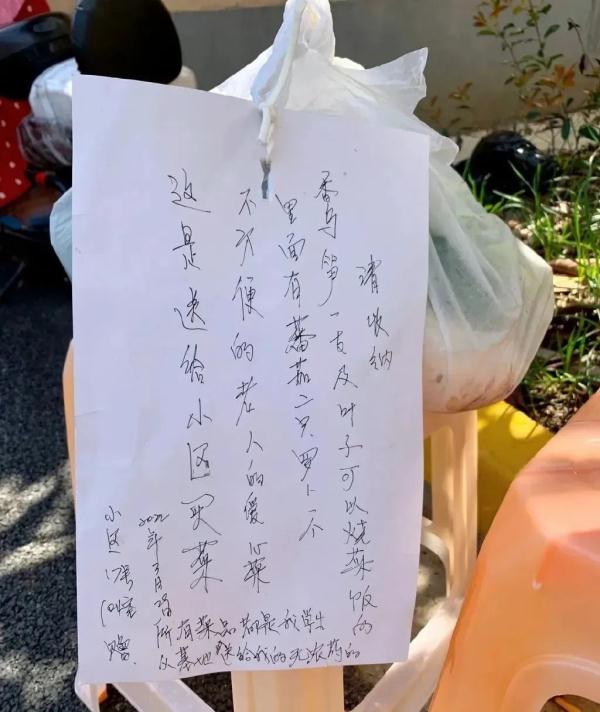 这是送给小区买菜
不方便的老人的愛心菜
里面有蕃茄二只罗卜一个
香乌笋一支及叶子可以烧菜饭的
请收纳
所有菜品都是我学生
从基地送给我的无农药的
2022年3月
小区
赠